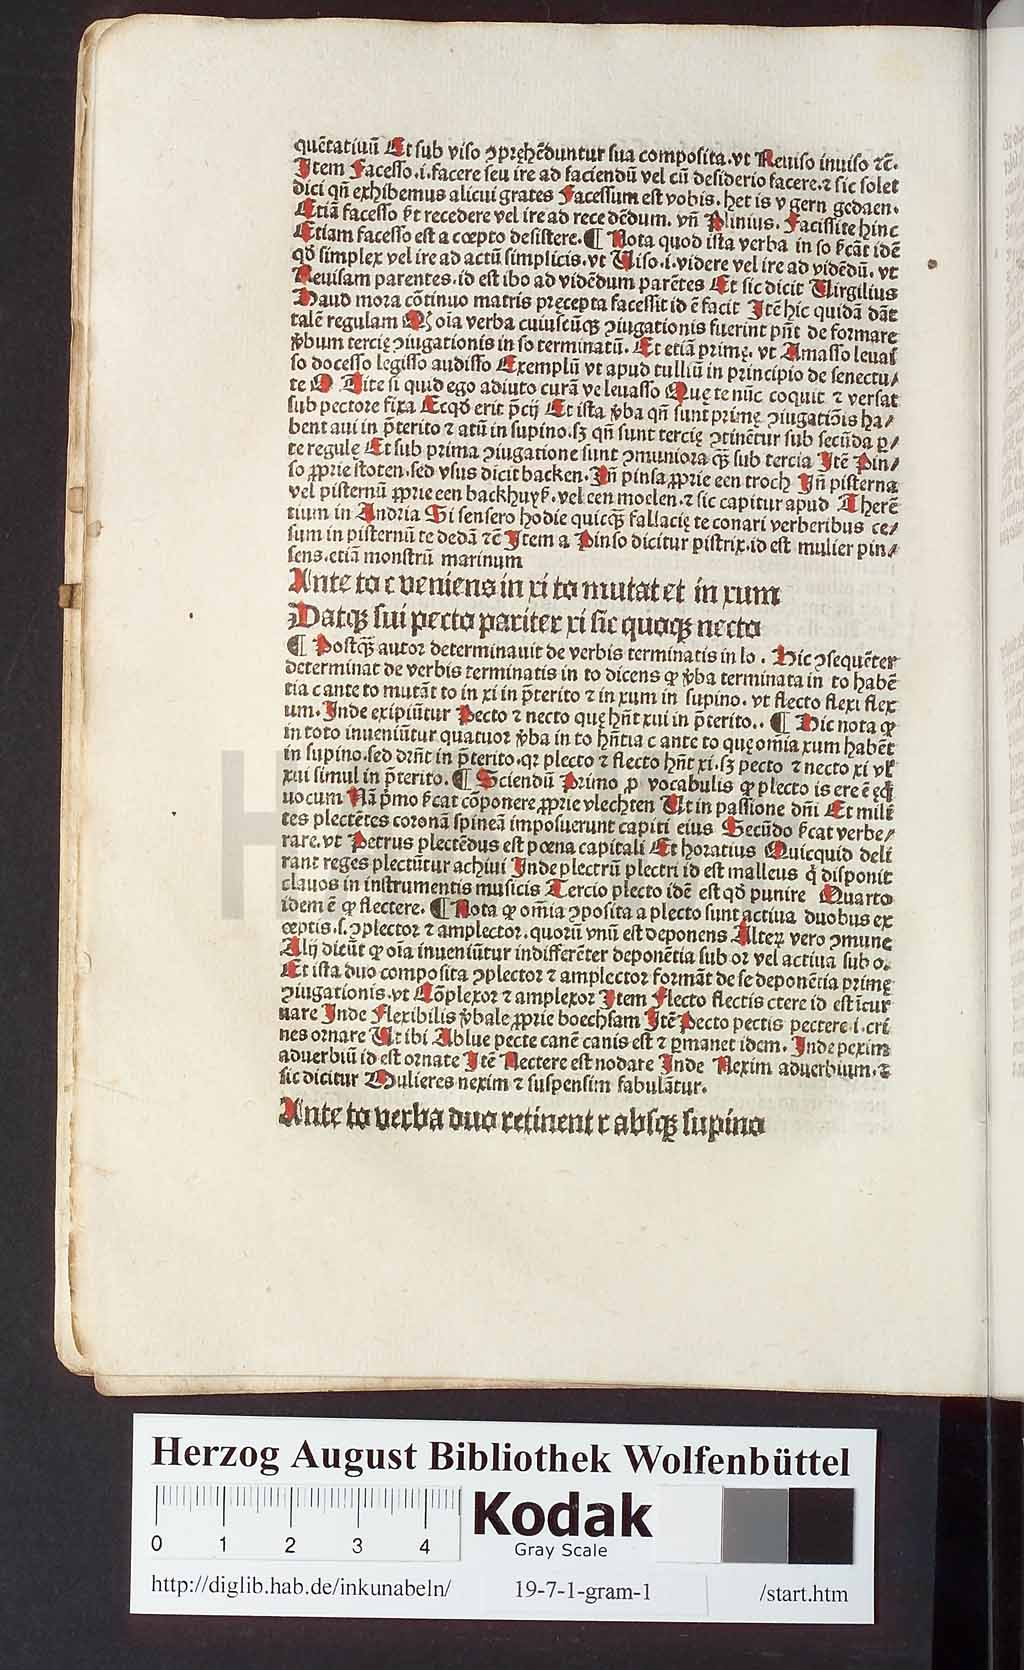 quētatiuū Et sub viso ꝯprȩhēduntur sua composita. vt Reuiso inuiso ⁊c̄.
Item Facesso .i. facere seu ire ad faciendū vel cū desiderio facere. ⁊ sic solet
dici qn̄ exhibemus alicui grates Facessum est vobis. het is v gern gedaen.
Etiā facesso ſt recedere vel ire ad recedēdum. vn̄ Plinius. Facissite hinc
Etiam facesso est a cœpto desistere. ¶ Nota quod ista verba in so ſcāt idē
qd̄ simplex vel ire ad actū simplicis. vt Uiso .i. videre vel ire ad vidēdū. vt
Reuisam parentes. id est ibo ad vidēdum parētes Et sic dicit Uirgilius
Haud mora cōtinuo matris prȩcepta facessit id ē facit Itē hic quidā dāt
talē regulam Ꝙ oīa verba cuiuscūqꝫ ꝯiugationis fuerint pn̄t de formare
v̄bum tercie ꝯiugationis in so terminatū. Et etiā primȩ. vt Amasso leuas
so docesso legisso audisso Exemplū vt apud tulliū in principio de senectu/
te O Tite si quid ego adiuto curā ve leuasso Quȩ te nūc coquit ⁊ versat
sub pectore fixa Ecqd̄ erit p̄cij Et ista v̄ba qn̄ sunt primȩ ꝯiugatiōis ha/
bent aui in p̄terito ⁊ atū in supino. sꝫ qn̄ sunt tercie ꝯtinētur sub secūda ꝑ/
te regulȩ Et sub prima ꝯiugatione sunt ꝯmuniora qꝫ̄ sub tercia Itē Pin/
so ꝓprie stoten. sed vsus dicit backen. In̄ pinsa ꝓprie een troch In̄ pisterna
vel pisternū ꝓprie een backhuyſ. vel een moelen. ⁊ sic capitur apud Therē
tium in Andria Si sensero hodie quicqꝫ̄ fallaciȩ te conari verberibus ce/
sum in pisternū te dedā ⁊c̄ Item a Pinso dicitur pistrix. id est mulier pin/
sens. etiā monstrū marinum
Ante to c veniens in xi to mutat et in xum
Datqꝫ sui pecto pariter xi sic quoqꝫ necto
¶ Postqꝫ̄ autor determinauit de verbis terminatis in so. Hic ꝯsequēter
determinat de verbis terminatis in to dicens ꝙ v̄ba terminata in to habē
tia c ante to mutāt to in xi in p̄terito ⁊ in xum in supino. vt flecto flexi flex
um. Inde exipiūtur Pecto ⁊ necto quȩ hn̄t xui in p̄terito.. ¶ Hic nota ꝙ
in toto inueniūtur quatuor v̄ba in to hn̄tia c ante to quȩ om̄ia xum habēt
in supino. sed drn̄t in p̄terito. qꝛ plecto ⁊ flecto hn̄t xi. sꝫ pecto ⁊ necto xi vl̄
xui simul in p̄terito. ¶ Sciendū Primo ꝓ vocabulis ꝙ plecto is ere ē ȩq̄
uocum Nā p̄mo ſcat cōponere ꝓprie vlechten Ut in passione dn̄i Et mili
tes plectētes coronā spineā imposuerunt capiti eius Secūdo ſcat verbe/
rare. vt Petrus plectēdus est pœna capitali Et horatius Quicquid deli
rant reges plectūtur achiui Inde plectrū plectri id est malleus q̄ disponit
clauos in instrumentis musicis Tercio plecto idē est qd̄ punire Quarto
idem ē ꝙ flectere. ¶ Nota ꝙ om̄ia ꝯposita a plecto sunt actiua duobus ex
cœptis. s. ꝯplector ⁊ amplector. quorū vnū est deponens Alteꝝ vero ꝯmune
Alij dicūt ꝙ oīa inueniūtur indifferēter deponētia sub or vel actiua sub o.
Et ista duo composita ꝯplector ⁊ amplector formāt de se deponētia primȩ
ꝯiugationis. vt Cōplexor ⁊ amplexor Item Flecto flectis ctere id est īcur
uare Inde Flexibilis v̄bale ꝓprie boechsam Itē Pecto pectis pectere .i. cri
nes ornare Ut ibi Ablue pecte canē canis est ⁊ ꝑmanet idem. Inde pexim
aduerbiū id est ornate Itē Nectere est nodare Inde Nexim aduerbium. ⁊
sic dicitur Mulieres nexim ⁊ suspensim fabulātur.
Ante to verba duo retinent c absqꝫ supino
Herzog August Bibliothek Wolfenbüttel
0 1 2 3 4
Kodak
Gray Scale
http://diglib.hab.de/inkunabeln/ 19-7-1-gram-1 /start.htm